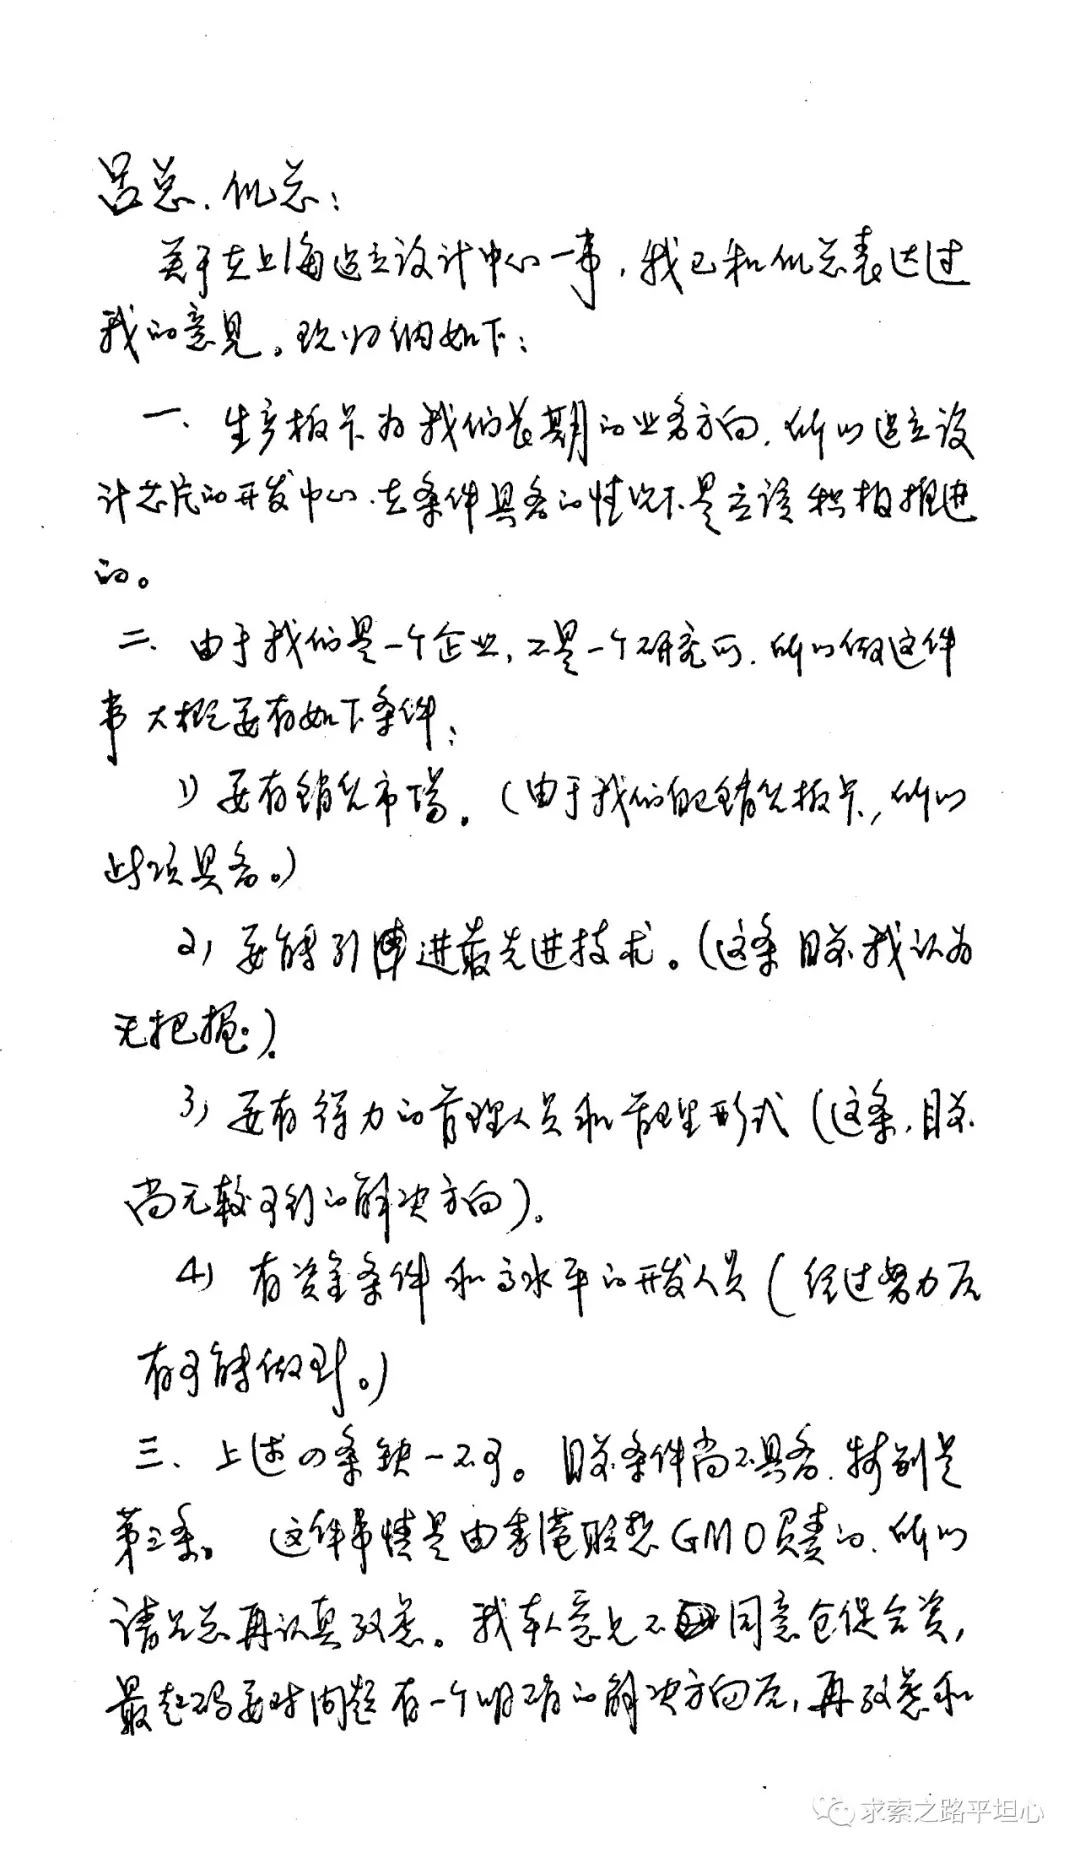 吕总、倪总：
关于在上海建立设计中心一事，我已和倪总表达过
我的意见。现归纳如下：
一、生产板卡为我们长期的业务方向，所以建立设
计芯片的开发中心，在条件具备的情况下是应该积极推进
的。
二、由于我们是一个企业，不是一个研究所，所以做这件
事大概要有如下条件：
1）要有销售市场。（由于我们自己销售板卡，所以
此项具备。）
2）要能引进最先进技术。（这条目前我认为
无把握。）
3）要有得力的管理人员和管理形式（这条，目前
尚无较可行的解决方向）。
4）有资金条件和高水平的开发人员（经过努力后
有可能做到。）
三、上述四条缺一不可。目前条件尚不具备，特别是
第三条。这件事情是由香港联想GMO负责的，所以
请吕总再认真考虑。我本人意见不同意仓促合资，
最起码要对问题有一个明确的解决方向后，再考虑和
求索之路平坦心